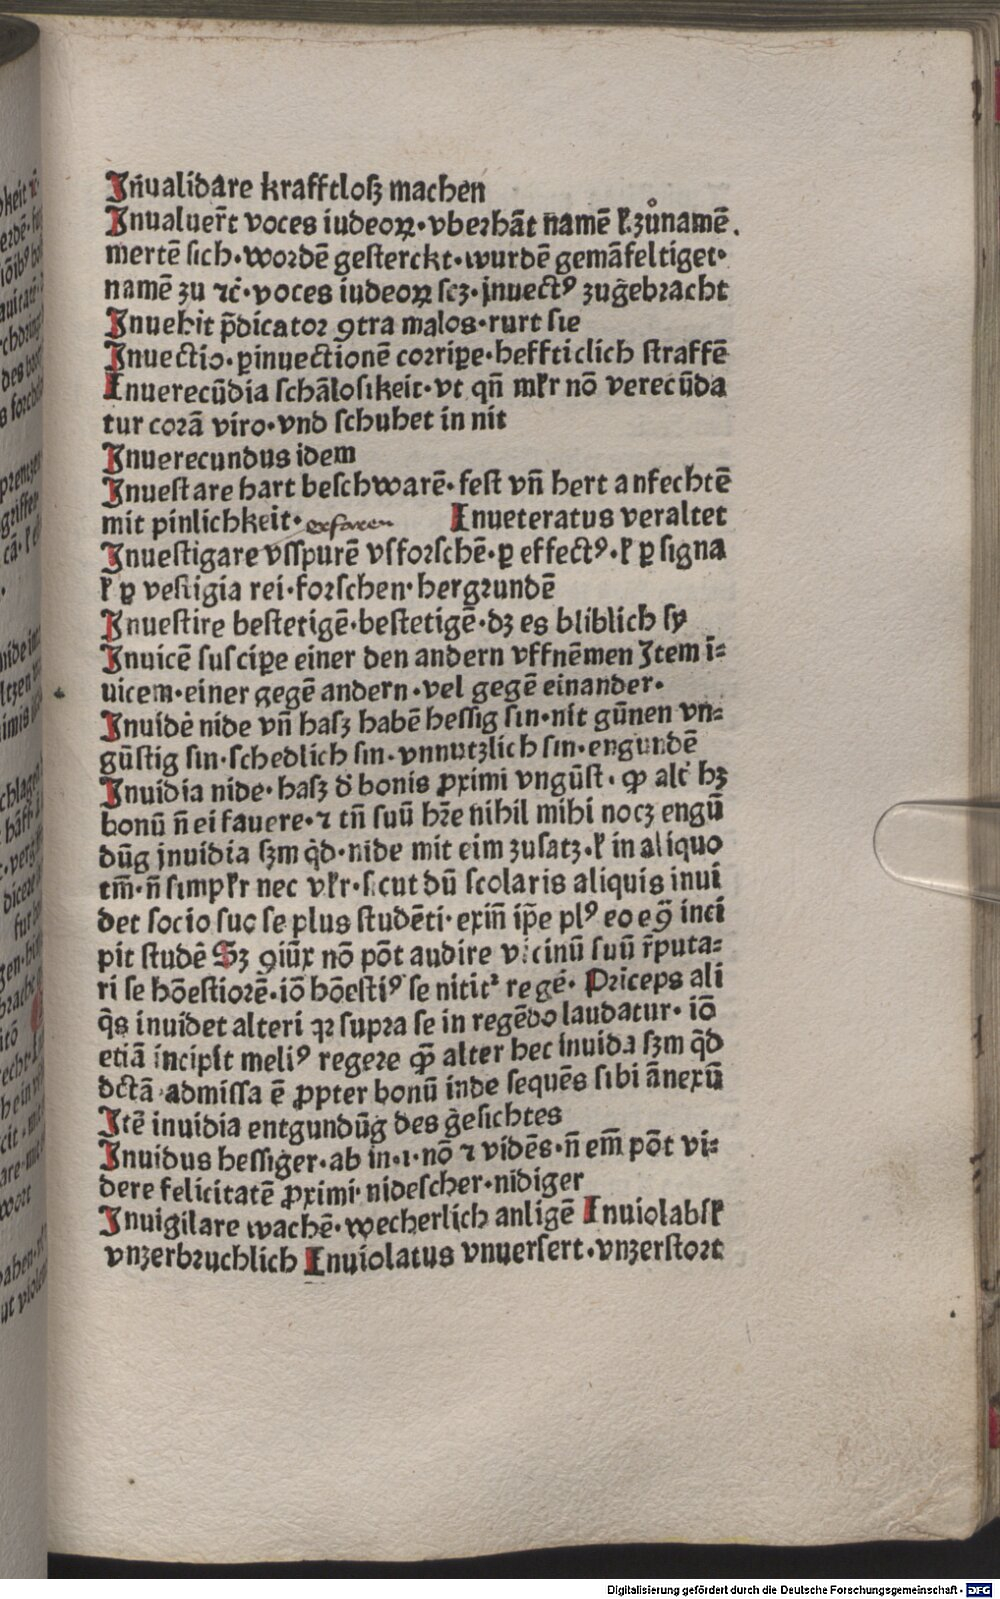 Jn̄ualidare krafftloſz machen
Jnualuer̄t voces iudeoꝝ·vberhāt namē ł zůnamē.
mertē ſich·wordē geſterckt·wurdē gemāfeltiget·
namē zu ⁊c̄·voces iudeoꝝ ſcz·jnuectꝰ zug̈ebracht
Jnuehit p̄dicator ꝯtra malos·rurt ſie
Jnuectio·ꝑinuectionē corripe·heffticlich ſtraffē
Jnuerecūdia ſchāloſikeit·vt qn̄ młr nō verecūda
tur corā viro·vnd ſchuhet in nit
Jnuerecundus idem
Jnueſtare hart beſchwarē·feſt vn̄ hert anfechtē
mit pinlichkeit· erfaren Jnueteratus veraltet
Jnueſtigare vſſpurē vſforſchē·ꝑ effectꝰ·ł ꝑ ſigna
ł ꝑ veſtigia rei·forſchen·hergrundē
Jnueſtire beſtetigē·beſtetigē·dz es bliblich ſy
Jnuicē ſuſcipe einer den andern vffnēmen Jtem ī⸗
uicem·einer gegē andern·vel gegē einander·
Jnuidē nide vn̄ haſz habē heſſig ſin·nit gūnen vn⸗
gūſtig ſin·ſchedlich ſin·vnnutzlich ſin·engundē
Jnuidia nide·haſz d̄ bonis ꝓximi vngūſt·ꝙ alt̄ hꝫ
bonū n̄ ei fauere·⁊ tn̄ ſuū hr̄e nihil mihi nocꝫ engū
dūg jnuidia ſꝫm q̇d·nide mit eim zuſatz·ł in aliquo
tm̄·n̄ ſimpłr nec vłr·ſicut dū ſcolaris aliquis inui
det ſocio ſuo ſe plus ſtudēti·exim̄ ip̄e plꝰ eo eḡ inci
pit ſtudē Sꝫ ꝯiūx nō pōt audire vicinū ſuū r̄puta⸗
ri ſe hōeſtiorē·iō hōeſtiꝰ ſe nititᷣ regē· Prīceps ali
q̇s inuidet alteri ꝗꝛ ſupra ſe in regēdo laudatur·iō
etiā incipit meliꝰ regere ꝙ̄ alter hec inuidia ſꝫm q̇d
dctā admiſſa ē ꝓpter bonū inde ſequēs ſibi ānexū
Jtē inuidia entgundūg des g̈eſichtes
Jnuidus heſſiger·ab in·i·nō ⁊ vidēs·n̄ em̄ pōt vi⸗
dere felicitatē ꝓximi·nideſcher·nidiger
Jnuigilare wachē·wecherlich anligē Jnuiolabſł
vnzerbruchlich Jnuiolatus vnuerſert·vnzerſtort
Digitalisierung gefördert durch die Deutsche Forschungsgemeinschaft - DFG